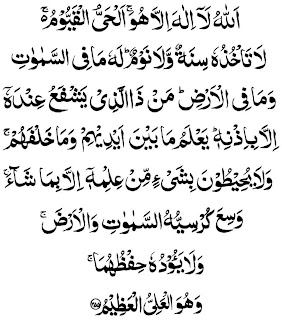 اَللّٰهُ لَآ اِلٰهَ اِلَّا هُوَۚ اَلْحَیُّ الْقَیُّوْمُ ۚ
لَا تَاْخُذُهٗ سِنَةٌ وَّلَا نَوْمٌؕ لَهٗ مَا فِی السَّمٰوٰتِ
وَمَا فِی الْاَرْضِؕ مَنْ ذَا الَّذِیْ یَشْفَعُ عِنْدَهٗۤ
اِلَّا بِاِذْنِهٖؕ یَعْلَمُ مَا بَیْنَ اَیْدِیْهِمْ وَمَا خَلْفَهُمْۚ
وَلَا یُحِیْطُوْنَ بِشَیْءٍ مِّنْ عِلْمِهٖۤ اِلَّا بِمَا شَآءَۚ
وَسِعَ كُرْسِیُّهُ السَّمٰوٰتِ وَالْاَرْضَۚ
وَلَا یَـُٔوْدُهٗ حِفْظُهُمَاۚ
وَهُوَ الْعَلِیُّ الْعَظِیْمُ ﴿۲۵۵﴾